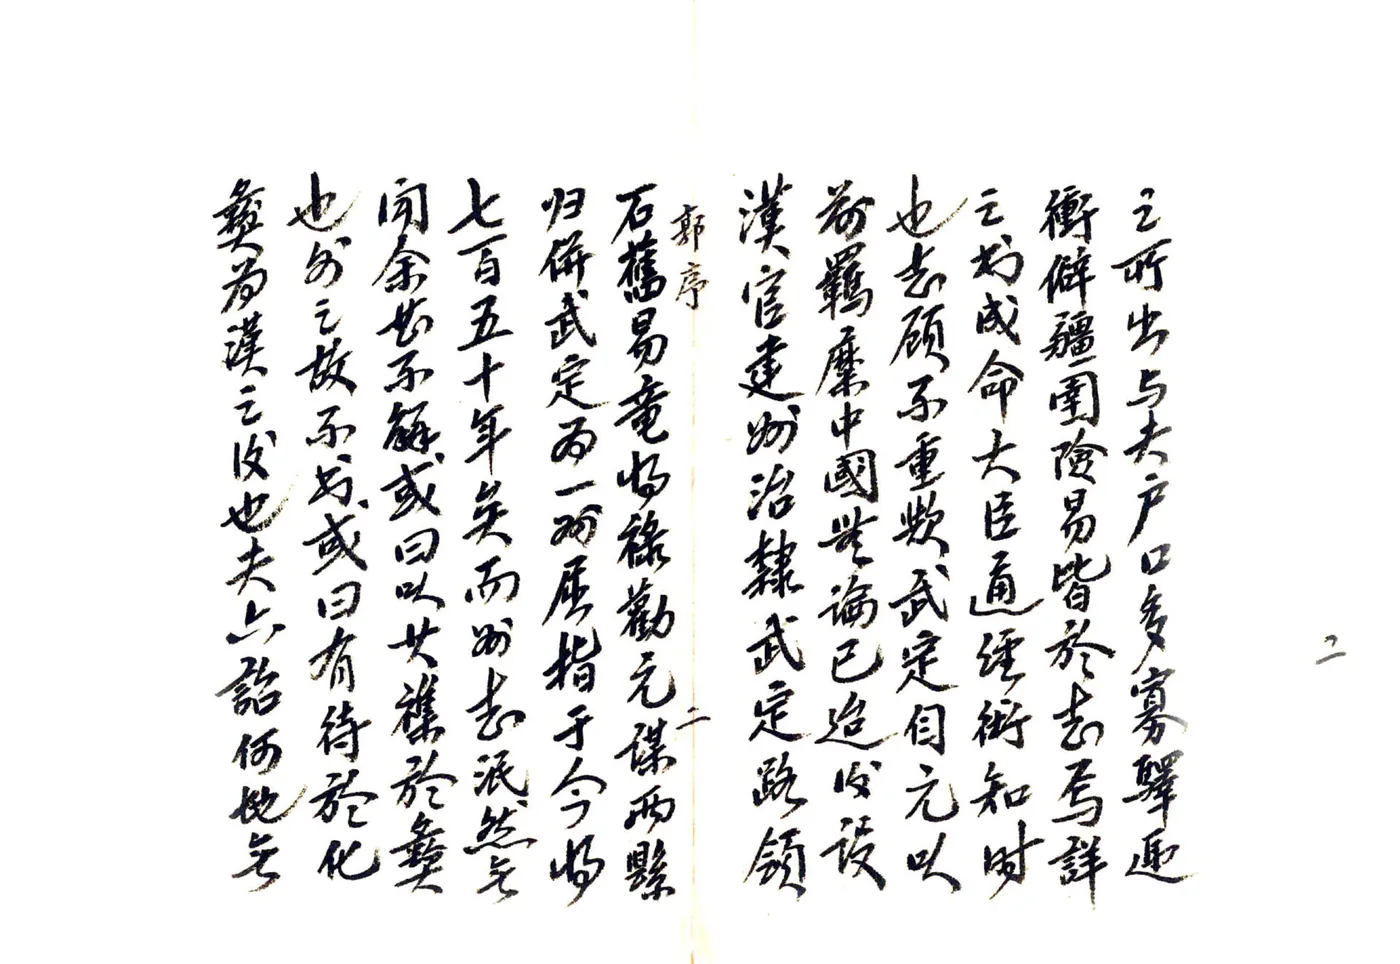 之所出与夫户口多寡驛逓
衝僻疆圉險易皆於志焉詳
之故成命大臣通經術知时
也志顾不重欤武定自元以
前羈縻中國無論已迨後設
漢官建州治隸武定路領
石舊易竜将禄勸元謀两縣
归併武定为一州屈指于今将
七百五十年矣而州志泯然无
闻余甚不解或曰以其襍於彝
也外之故不书或曰有待於化
彝为漢之後也夫六詔何地无
郭序
二
二